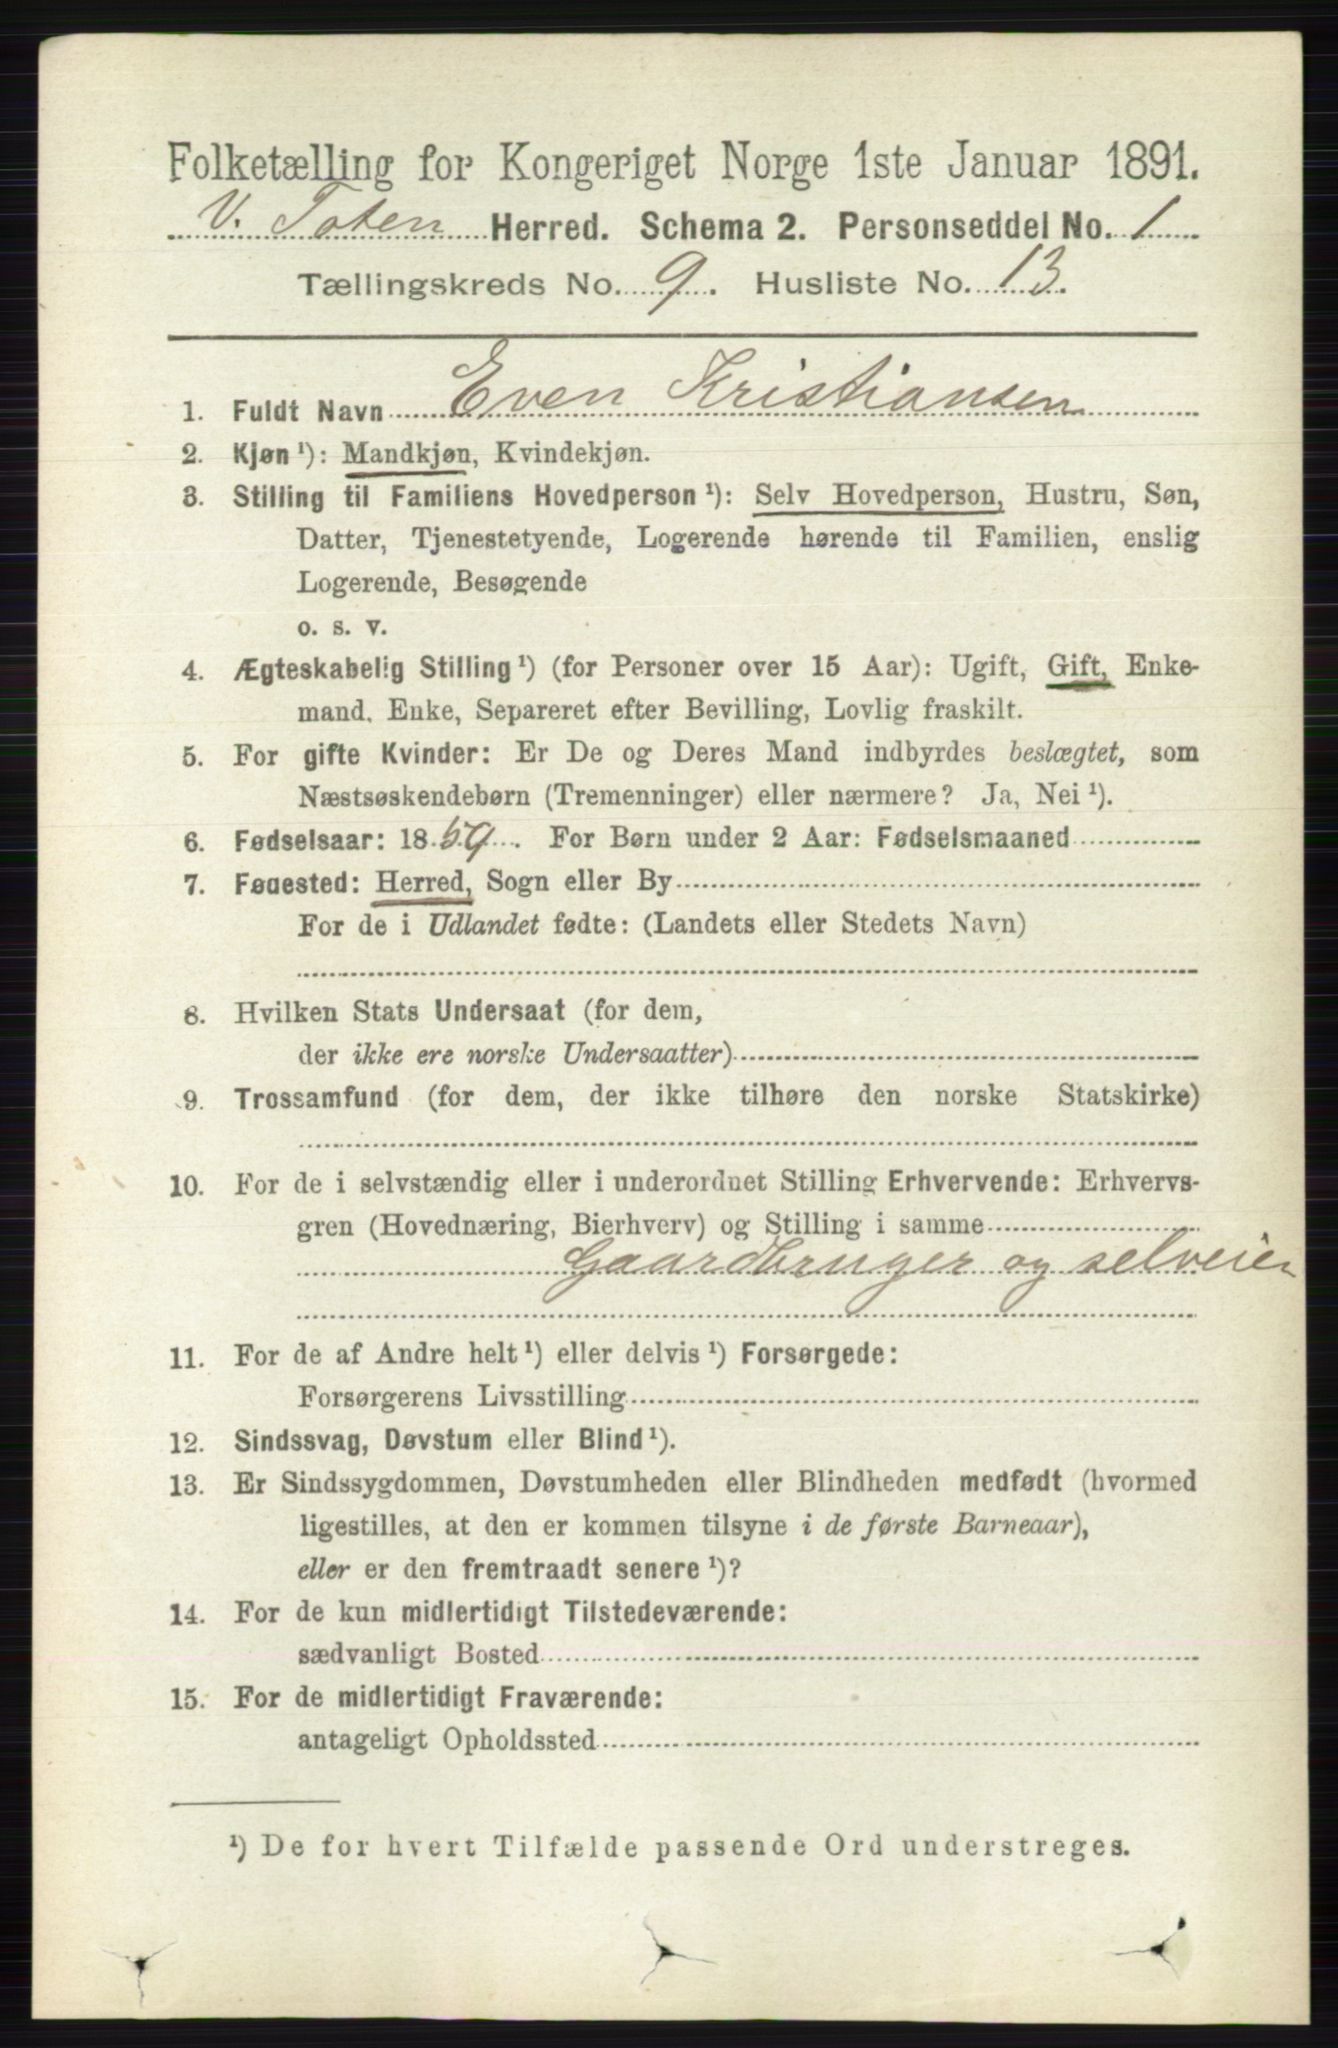 Folketælling for Kongeriget Norge 1ste Januar 1891.
V. Toten Herred. Schema 2. Personseddel No. 1
Tællingskreds No. 9. Husliste No. 13.
1. Fuldt Navn Even Kristiansen
2. Kjøn ¹): Mandkjøn, Kvindekjøn.
3. Stilling til Familiens Hovedperson ¹): Selv Hovedperson, Hustru, Søn,
Datter, Tjenestetyende, Logerende hørende til Familien, enslig
Logerende, Besøgende
o. s. v.
4. Ægteskabelig Stilling ¹) (for Personer over 15 Aar): Ugift, Gift, Enke-
mand, Enke, Separeret efter Bevilling, Lovlig fraskilt.
5. For gifte Kvinder: Er De og Deres Mand indbyrdes beslægtet, som
Næstsøskendebørn (Tremenninger) eller nærmere? Ja, Nei ¹).
6. Fødselsaar: 1859. For Børn under 2 Aar: Fødselsmaaned
7. Fødested: Herred, Sogn eller By
For de i Udlandet fødte: (Landets eller Stedets Navn)
8. Hvilken Stats Undersaat (for dem,
der ikke ere norske Undersaatter)
9. Trossamfund (for dem, der ikke tilhøre den norske Statskirke)
10. For de i selvstændig eller i underordnet Stilling Erhvervende: Erhvervs-
gren (Hovednæring, Bierhverv) og Stilling i samme
Gaardbruger og selveier
11. For de af Andre helt ¹) eller delvis ¹) Forsørgede:
Forsørgerens Livsstilling
12. Sindssvag, Døvstum eller Blind ¹).
13. Er Sindssygdommen, Døvstumheden eller Blindheden medfødt (hvormed
ligestilles, at den er kommen tilsyne i de første Barneaar),
eller er den fremtraadt senere ¹)?
14. For de kun midlertidigt Tilstedeværende:
sædvanligt Bosted
15. For de midlertidigt Fraværende:
antageligt Opholdssted
¹) De for hvert Tilfælde passende Ord understreges.